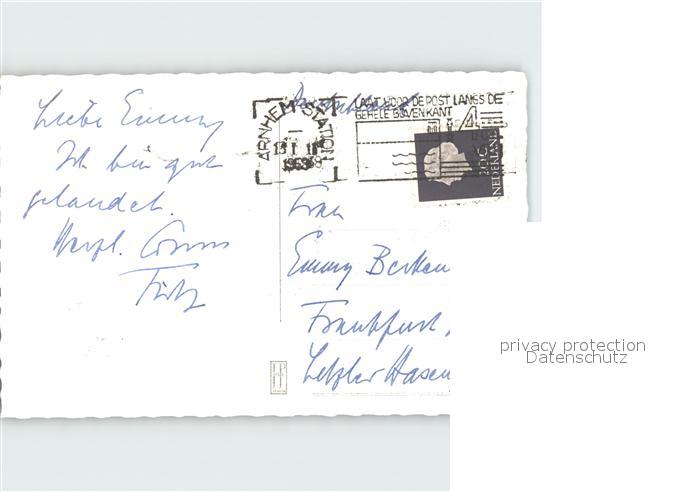 Liebe Emmy
Ich bin gut
gelandet.
Herzl. Gruss
Fritz
ARNHEM-STATION
1963
LAAT VOOR DE POST LANGS DE
GEHELE BOVENKANT
4
NEDERLAND
Frau
Emmy
Frankfurt,
Letzter Hasen
privacy protection
Datenschutz